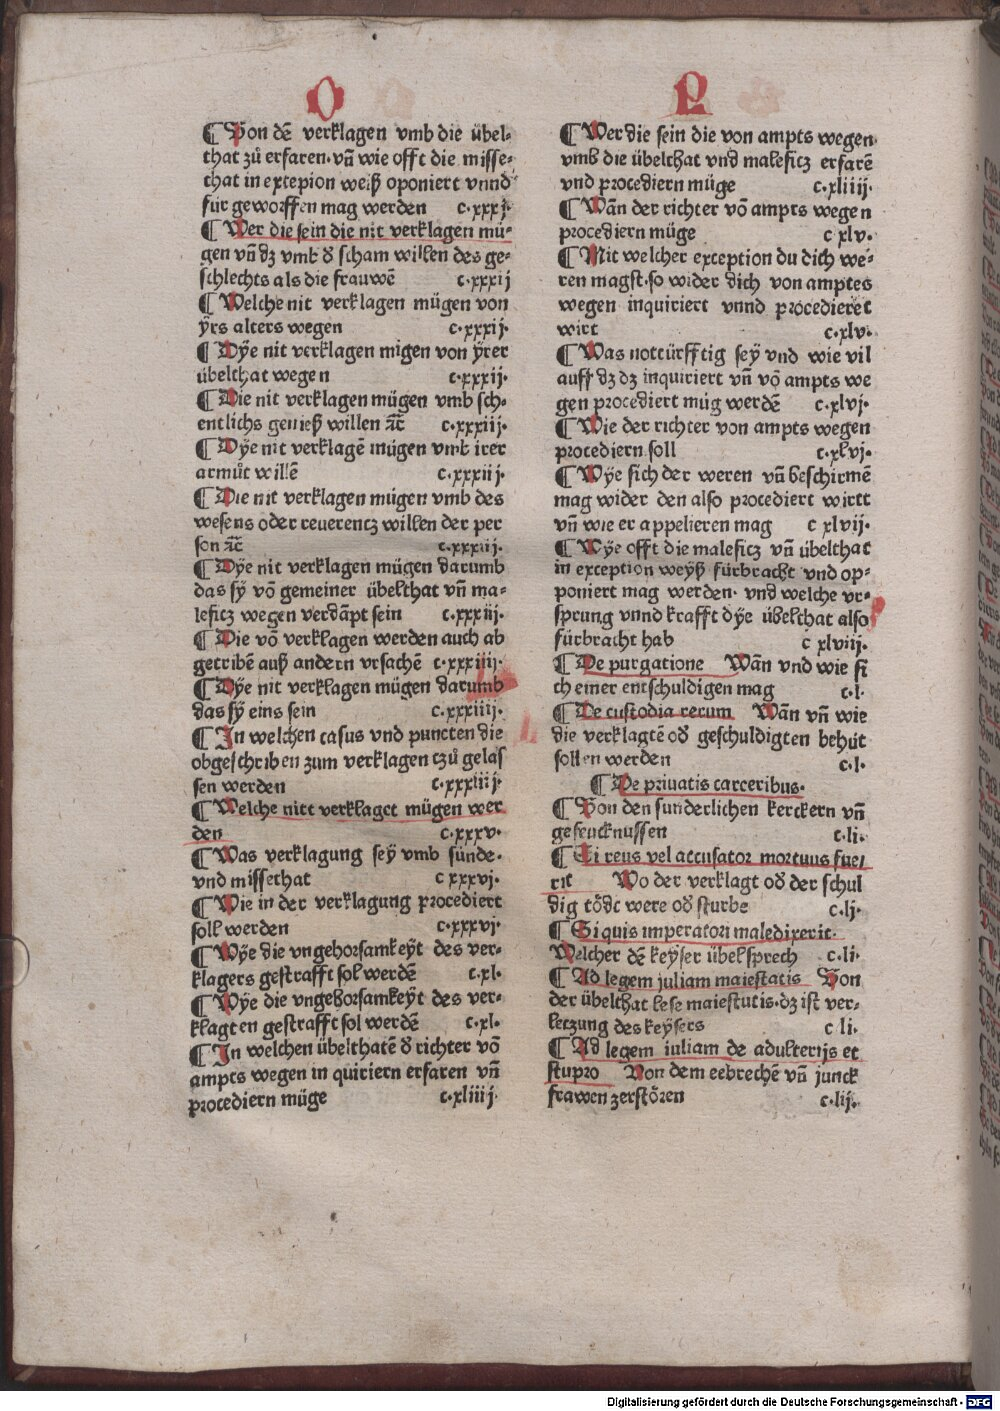 O
¶ Von dē verklagen vmb die übel-
that zů erfaren· vn̄ wie offt die misse-
that in extepion weiß oponiert vnnd
für geworffen mag werden c·xxxj·
¶ Wer die sein die nit verklagen mü-
gen vn̄ dz vmb d scham willen des ge-
schlechts als die frauwē c·xxxij
¶ Welche nit verklagen mügen von
ÿrs alters wegen c·xxxij·
¶ Dÿe nit verklagen migen von ÿrer
übelthat wegen c·xxxij·
¶ Die nit verklagen mügen vmb sch-
entlichs genieß willen ⁊c̄ c·xxxiij·
¶ Dÿe nit verklagē mügen vmb irer
armůt willē c·xxxiij·
¶ Die nit verklagen mügen vmb des
wesens oder reuerentz willen der per
son ⁊c̄ c·xxxiij·
¶ Dÿe nit verklagen mügen darumb
das sÿ vō gemeiner übelthat vn̄ ma-
leficz wegen verdāpt sein c·xxxiij·
¶ Die vō verklagen werden auch ab
getribē auß andern vrsachē c·xxxiiij·
¶ Dÿe nit verklagen mügen darumb
das sÿ eins sein c·xxxiiij·
¶ In welchen casus vnd puncten die
obgeschriben zum verklagen tzů gelas
sen werden c·xxxiiij·
¶ Welche nitt verklaget mügen wer
den c·xxxv·
¶ Was verklagung seÿ vmb sünde·
vnd missethat c xxxvj·
¶ Wie in der verklagung procediert
soll werden c·xxxvj·
¶ Wÿe die vngehorsamkeÿt des ver-
klagers gestrafft sol werdē c·xl·
¶ Wÿe die vngehorsamkeÿt des ver-
klagten gestrafft sol werdē c·xl·
¶ In welchen übelthatē d richter vō
ampts wegen in quiriern erfaren vn̄
procediern müge c·xliiij·
P
¶ Wer die sein die von ampts wegen
vmb die übelthat vnd maleficz erfarē
vnd procediern müge c·xliiij·
¶ Wān der richter vō ampts wegen
procediern müge c xlv·
¶ Mit welcher exception du dich we-
ren magst·so wider dich von amptes
wegen inquiriert vnnd procedieret
wirt c·xlv·
¶ Was nottürfftig seÿ vnd wie vil
auff dz dz inquiriert vn̄ vō ampts we
gen procediert müg werdē c·xlvj·
¶ Wie der richter von ampts wegen
procediern soll c·xlvj·
¶ Wÿe sich der weren vn̄ beschirmē
mag wider den also procediert wirtt
vn̄ wie er appelieren mag c xlvij·
¶ Wÿe offt die maleficz vn̄ übelthat
in exception weÿß fürbracht vnd op-
poniert mag werden· vnd welche vr-
sprung vnnd krafft dÿe übelthat also
fürbracht hab c xlviij·
¶ De purgatione Wān vnd wie si
ch einer entschuldigen mag c·l·
¶ De custodia rerum Wān vn̄ wie
die verklagtē od geschuldigten behüt
sollen werden c·l·
¶ De priuatis carceribus·
¶ Von den sunderlichen kerckern vn̄
gefencknussen c·li·
¶ Si reus vel accusator mortuus fue-
rit Wo der verklagt od der schul
dig tödc were od sturbe c·lj·
¶ Si quis imperatori maledixerit·
Welcher dē keÿser übelsprech c·li·
¶ Ad legem iuliam maiestatis Von
der übelthat lese maiestutis·dz ist ver-
letzung des keÿsers c li·
¶ Ad legem iuliam de adulterijs et
stupro Von dem eebrechē vn̄ junck
frawen zerstören c·lij·
Digitalisierung gefördert durch die Deutsche Forschungsgemeinschaft - DFG